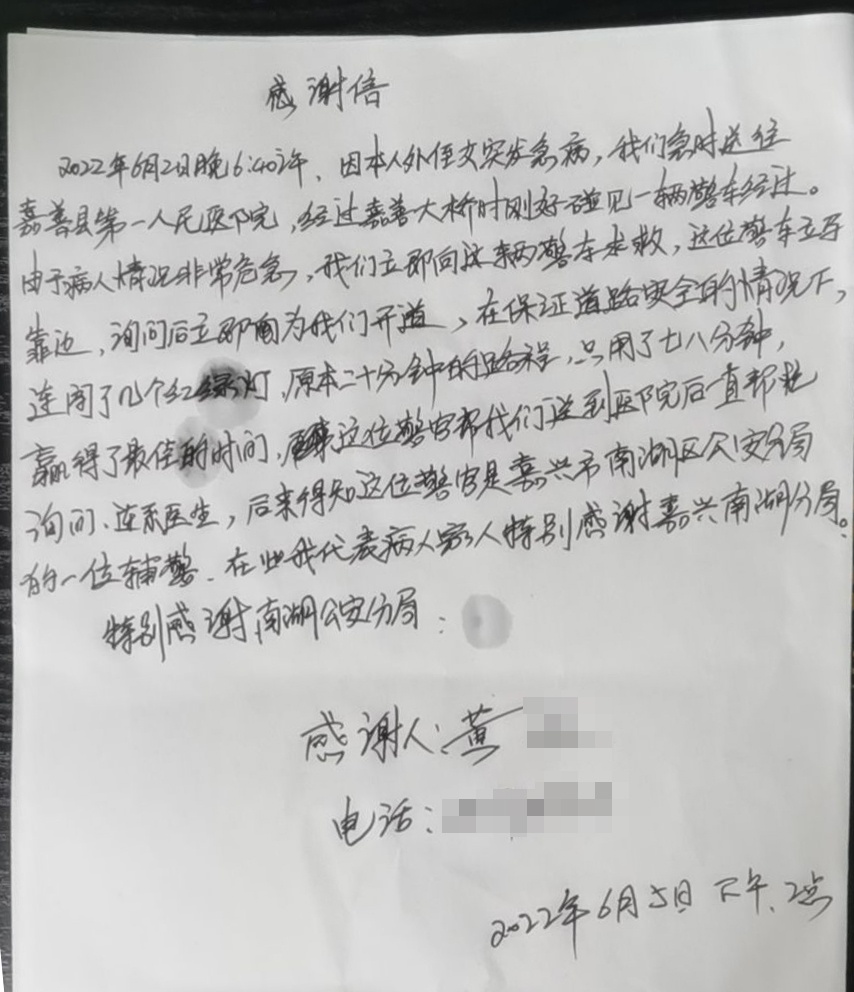 感谢信
2022年6月2日晚6:40许、因本人外侄女突发急病，我们急时送往
嘉善县第一人民医院，经过嘉善大桥时刚好碰见一辆警车经过。
由于病人情况非常危急，我们立即向这辆警车求救，这位警车立马
靠边，询问后立即为我们开道，在保证道路安全的情况下，
连闯了几个红绿灯，原本二十分钟的路程，只用了七八分钟，
赢得了最佳的时间，这位警官帮我们送到医院后一直帮忙
询问、连系医生，后来得知这位警官是嘉兴市南湖区公安分局
的一位辅警、在此我代表病人家人特别感谢嘉兴南湖分局。
特别感谢南湖公安分局：
感谢人：黄
电话：
2022年6月5日 下午、2点